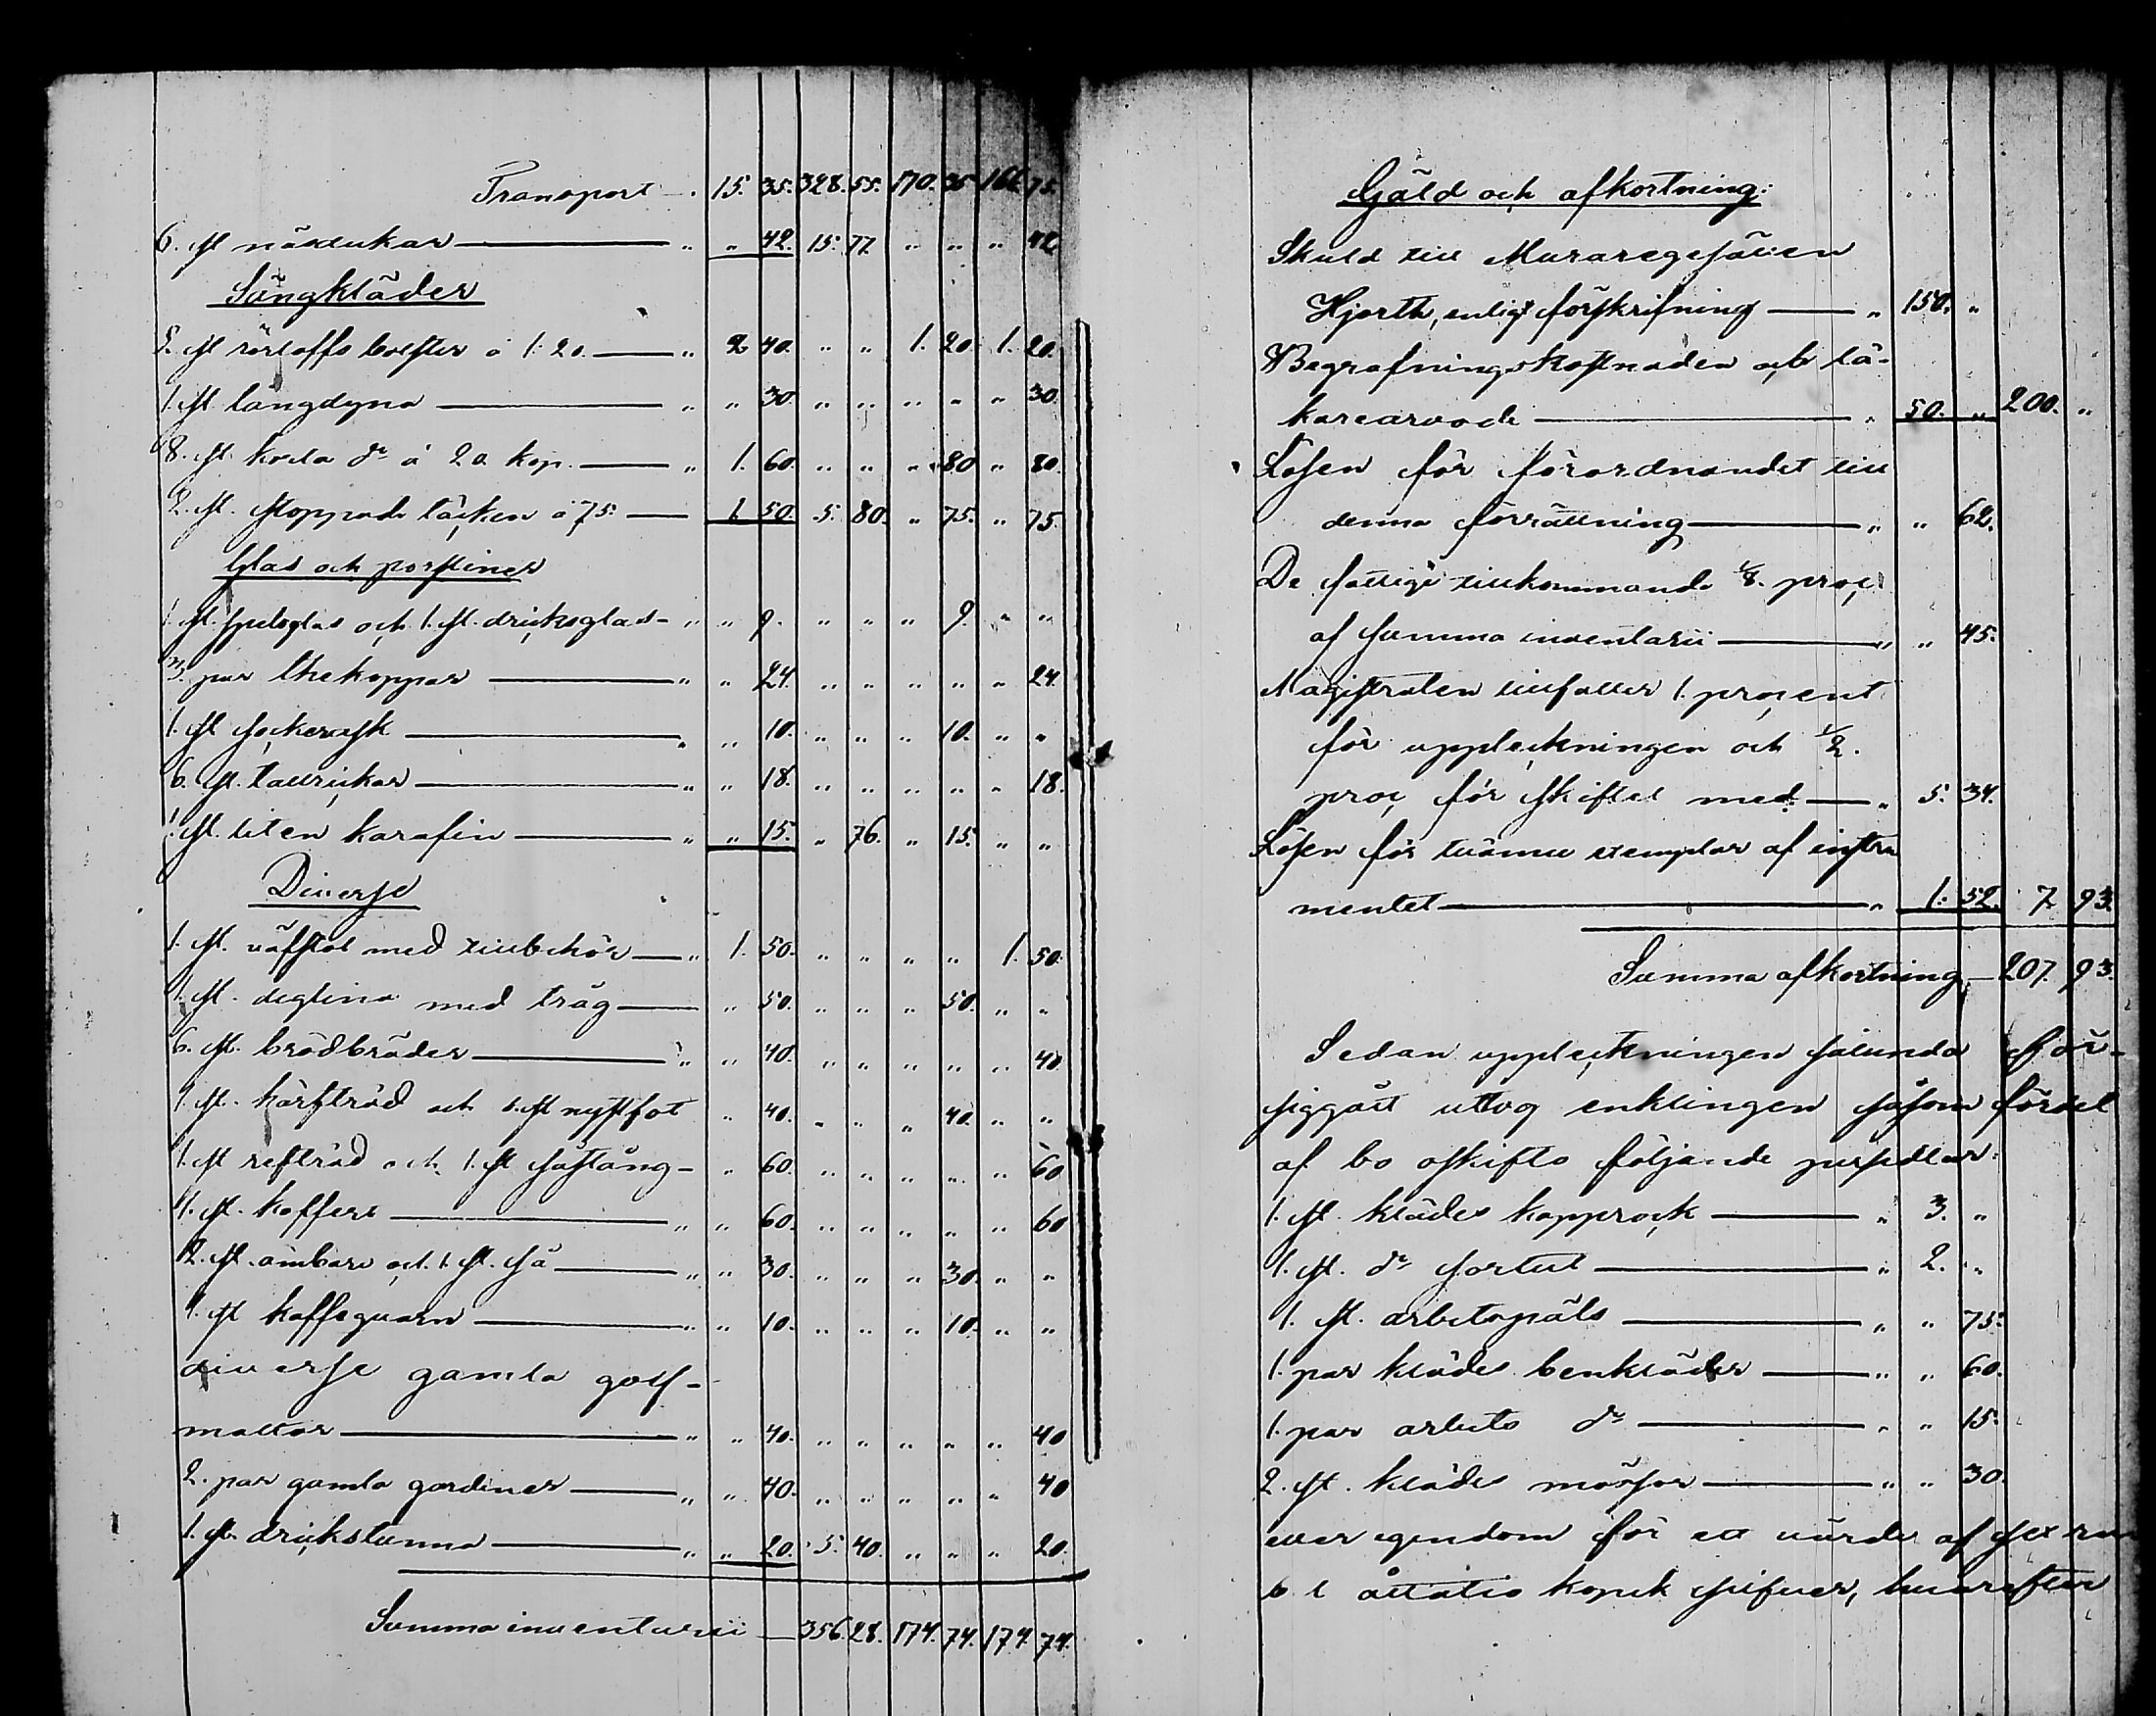 Transport - . 15. 35. 328. 55. 170. 35 166 75.
6. st näsdukar — „ „ 42. 15. 77 „ „ „ 42
Sängkläder
2. st rörtoffs bolster à 1. 20. — „ 2 40. „ „ 1. 20. 1. 20.
1. st långdyna — „ „ 30. „ „ „ „ „ 30.
8. st korta do à 20 kop. — „ 1. 60. „ „ „ 80 „ 80.
2. st. stoppade täcken à 75. — 1 50. 5. 80. „ 75. „ 75.
Glas och porsliner
1. st. spetsglas och 1. st. dricksglas - „ „ 9. „ „ „ 9. „ „
3. par thekoppar — „ „ 24. „ „ „ „ „ 24.
1. st sockerask — „ „ 10. „ „ „ 10. „ „
6. st. tallrickar — „ „ 18. „ „ „ „ „ 18.
1. st. liten karafin — „ „ 15. „ 76. „ 15. „ „
Diverse
1. st. väfstol med tillbehör — „ 1. 50. „ „ „ „ 1. 50.
1. st. deglina med tråg — „ 50. „ „ „ 50. „ „
6. st. brödbräder — „ „ 40. „ „ „ „ „ 40
1. st. härfträd och 1. st nystfot „ 40. „ „ „ 40. „ „
1. st refträd och 1. st såstång - „ 60. „ „ „ „ „ 60
1. st. koffert — „ „ 60. „ „ „ „ „ 60
2. st. ämbare och 1. st. så — „ „ 30. „ „ „ 30. „ „
1. st kaffequarn — „ „ 10. „ „ „ 10. „ „
diverse gamla golf-
mattor — „ „ 40. „ „ „ „ „ 40
2. par gamla gardiner — „ „ 40. „ „ „ „ „ 40
1. st. drickstunna — „ „ 20. 5. 40. „ „ „ 20.
Summa inventarii — 356. 28. 174. 74. 174 74.
Gäld och afkortning:
Skuld till Muraregesällen
Hjorth, enligt förskrifning — „ 150. „
Begrafningskostnaden och lä-
karearvode — „ 50. „ 200. „
Lösen för förordnandet till
denna förrättning — „ „ 62.
De fattige tillkommande 1/8. proc
af summa inventarii — „ „ 45.
Magistraten tillfaller 1. procent
för uppteckningen och 1/2.
proc för skiftet med — „ 5. 34.
Lösen för tvänne exemplar af instru
mentet — „ 1. 52. 7 93.
Summa afkortning — 207. 93.
Sedan uppteckningen sålunda för-
siggått uttog enklingen såsom fördel
af bo oskifto följande persedlar:
1. st. klädes kapprock — „ 3. „
1. st. do sortut — „ 2. „
1. st. arbetspäls — „ „ 75.
1. par klädes benkläder — „ „ 60.
1. par arbets do — „ „ 15.
2. st. klädes mössor — „ „ 30.
eller egendom för ett värde af sex ru
b l åttatio kopek silfver, hvarefter